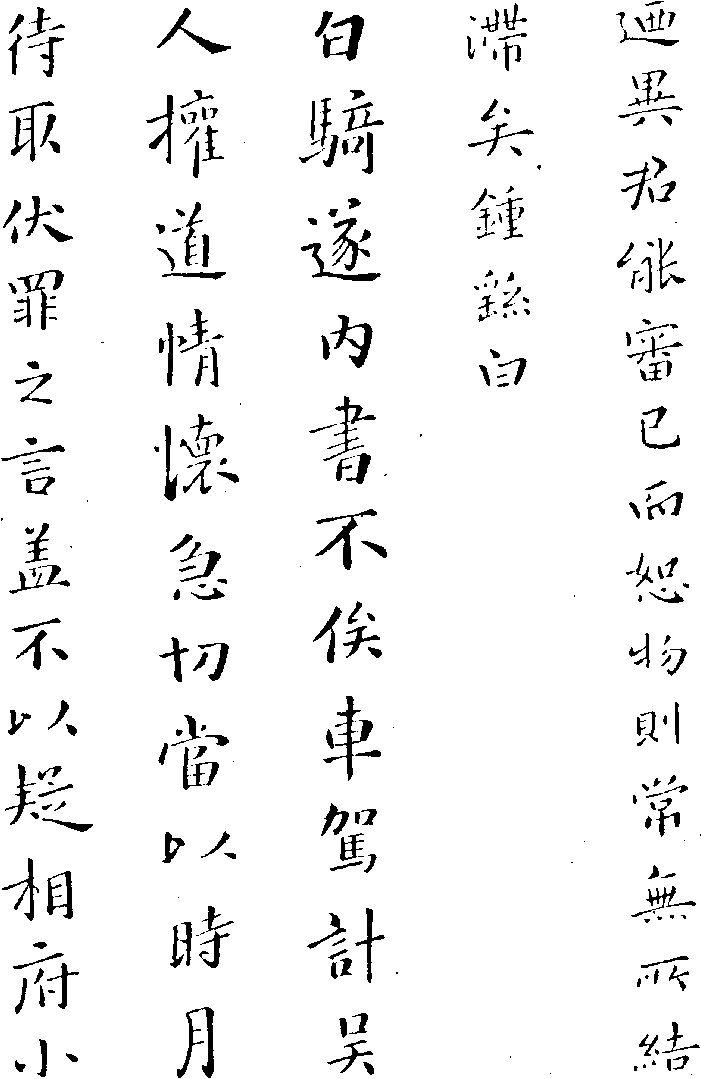 迺異君能審己而恕物則常無所結
滯矣鍾繇白
白騎遂內書不俟車駕計吴
人權道情懷急切當以時月
待取伏罪之言蓋不以疑相府小